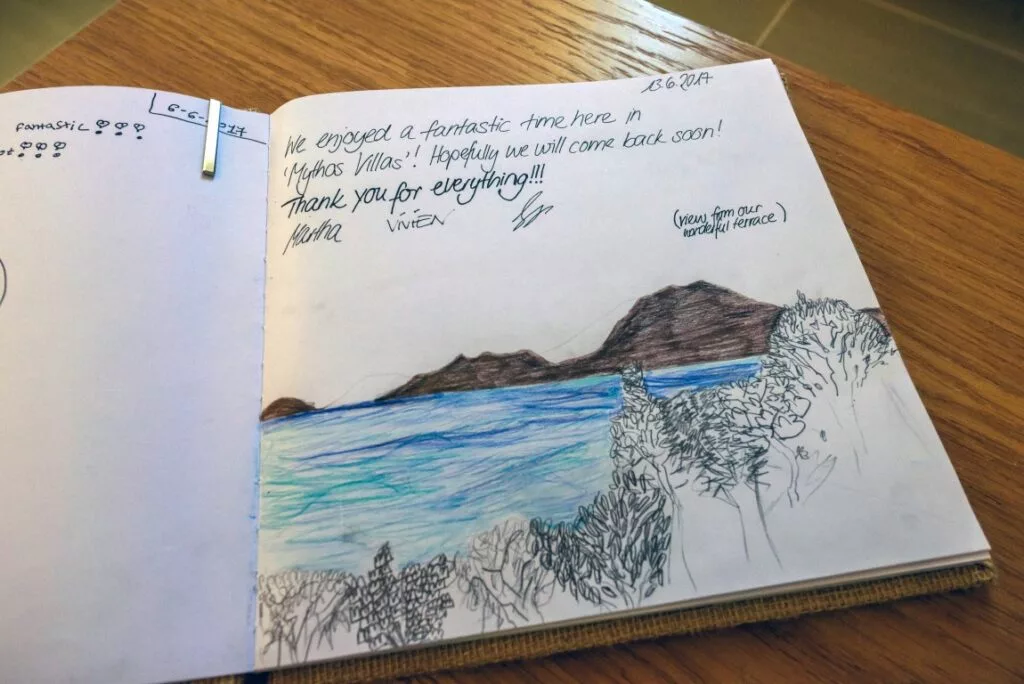 6-6-2017
fantastic !!!
!!!
13.6.2017
We enjoyed a fantastic time here in
'Mythos Villas'! Hopefully we will come back soon!
Thank you for everything!!!
Martha ViViEN
(view from our
wonderful terrace)